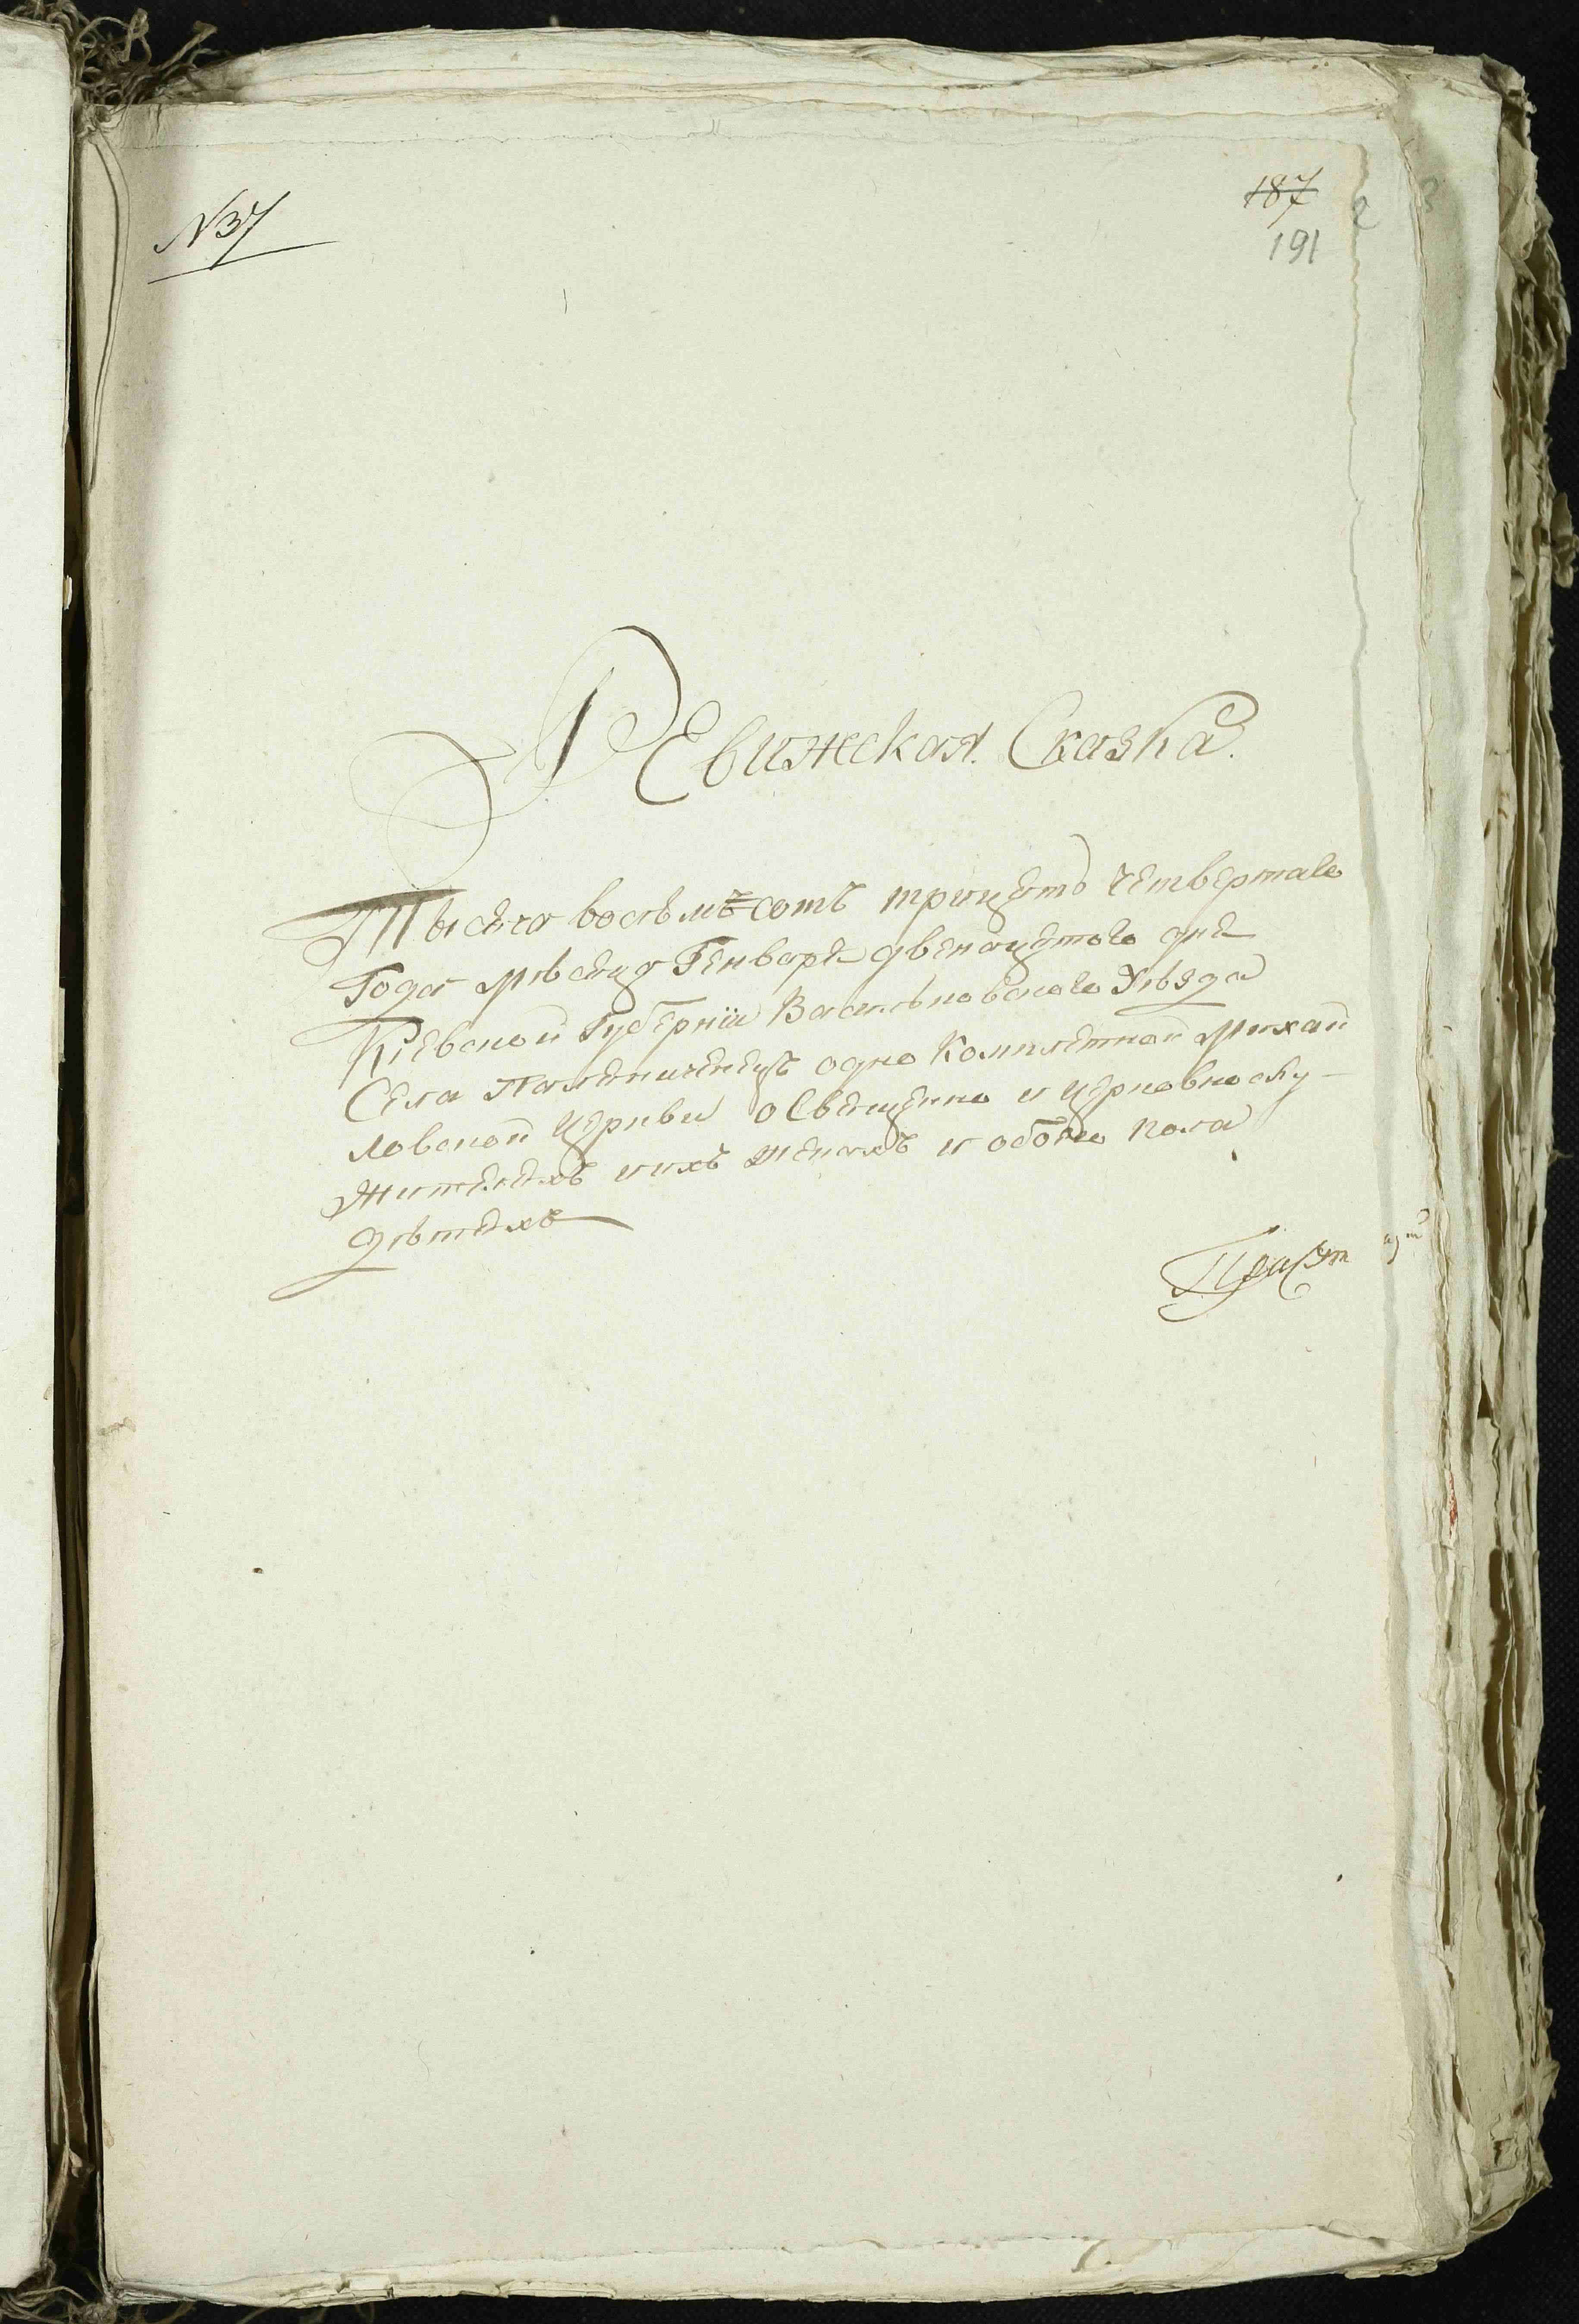 N37
187
191
2
3
Ревижская Сказка.
Тысяча восѣмъ=сотъ трицять четвертаго
Года мѣсяця Генваря двенацятого дня
Кіевской Губерніи Васильковского Уѣзда
Села Паляниченець одно Комплетной Михай
ловской Церкви о Священно и церковнослу-
жителяхъ и ихъ женахъ и обоего пола
дѣтяхъ